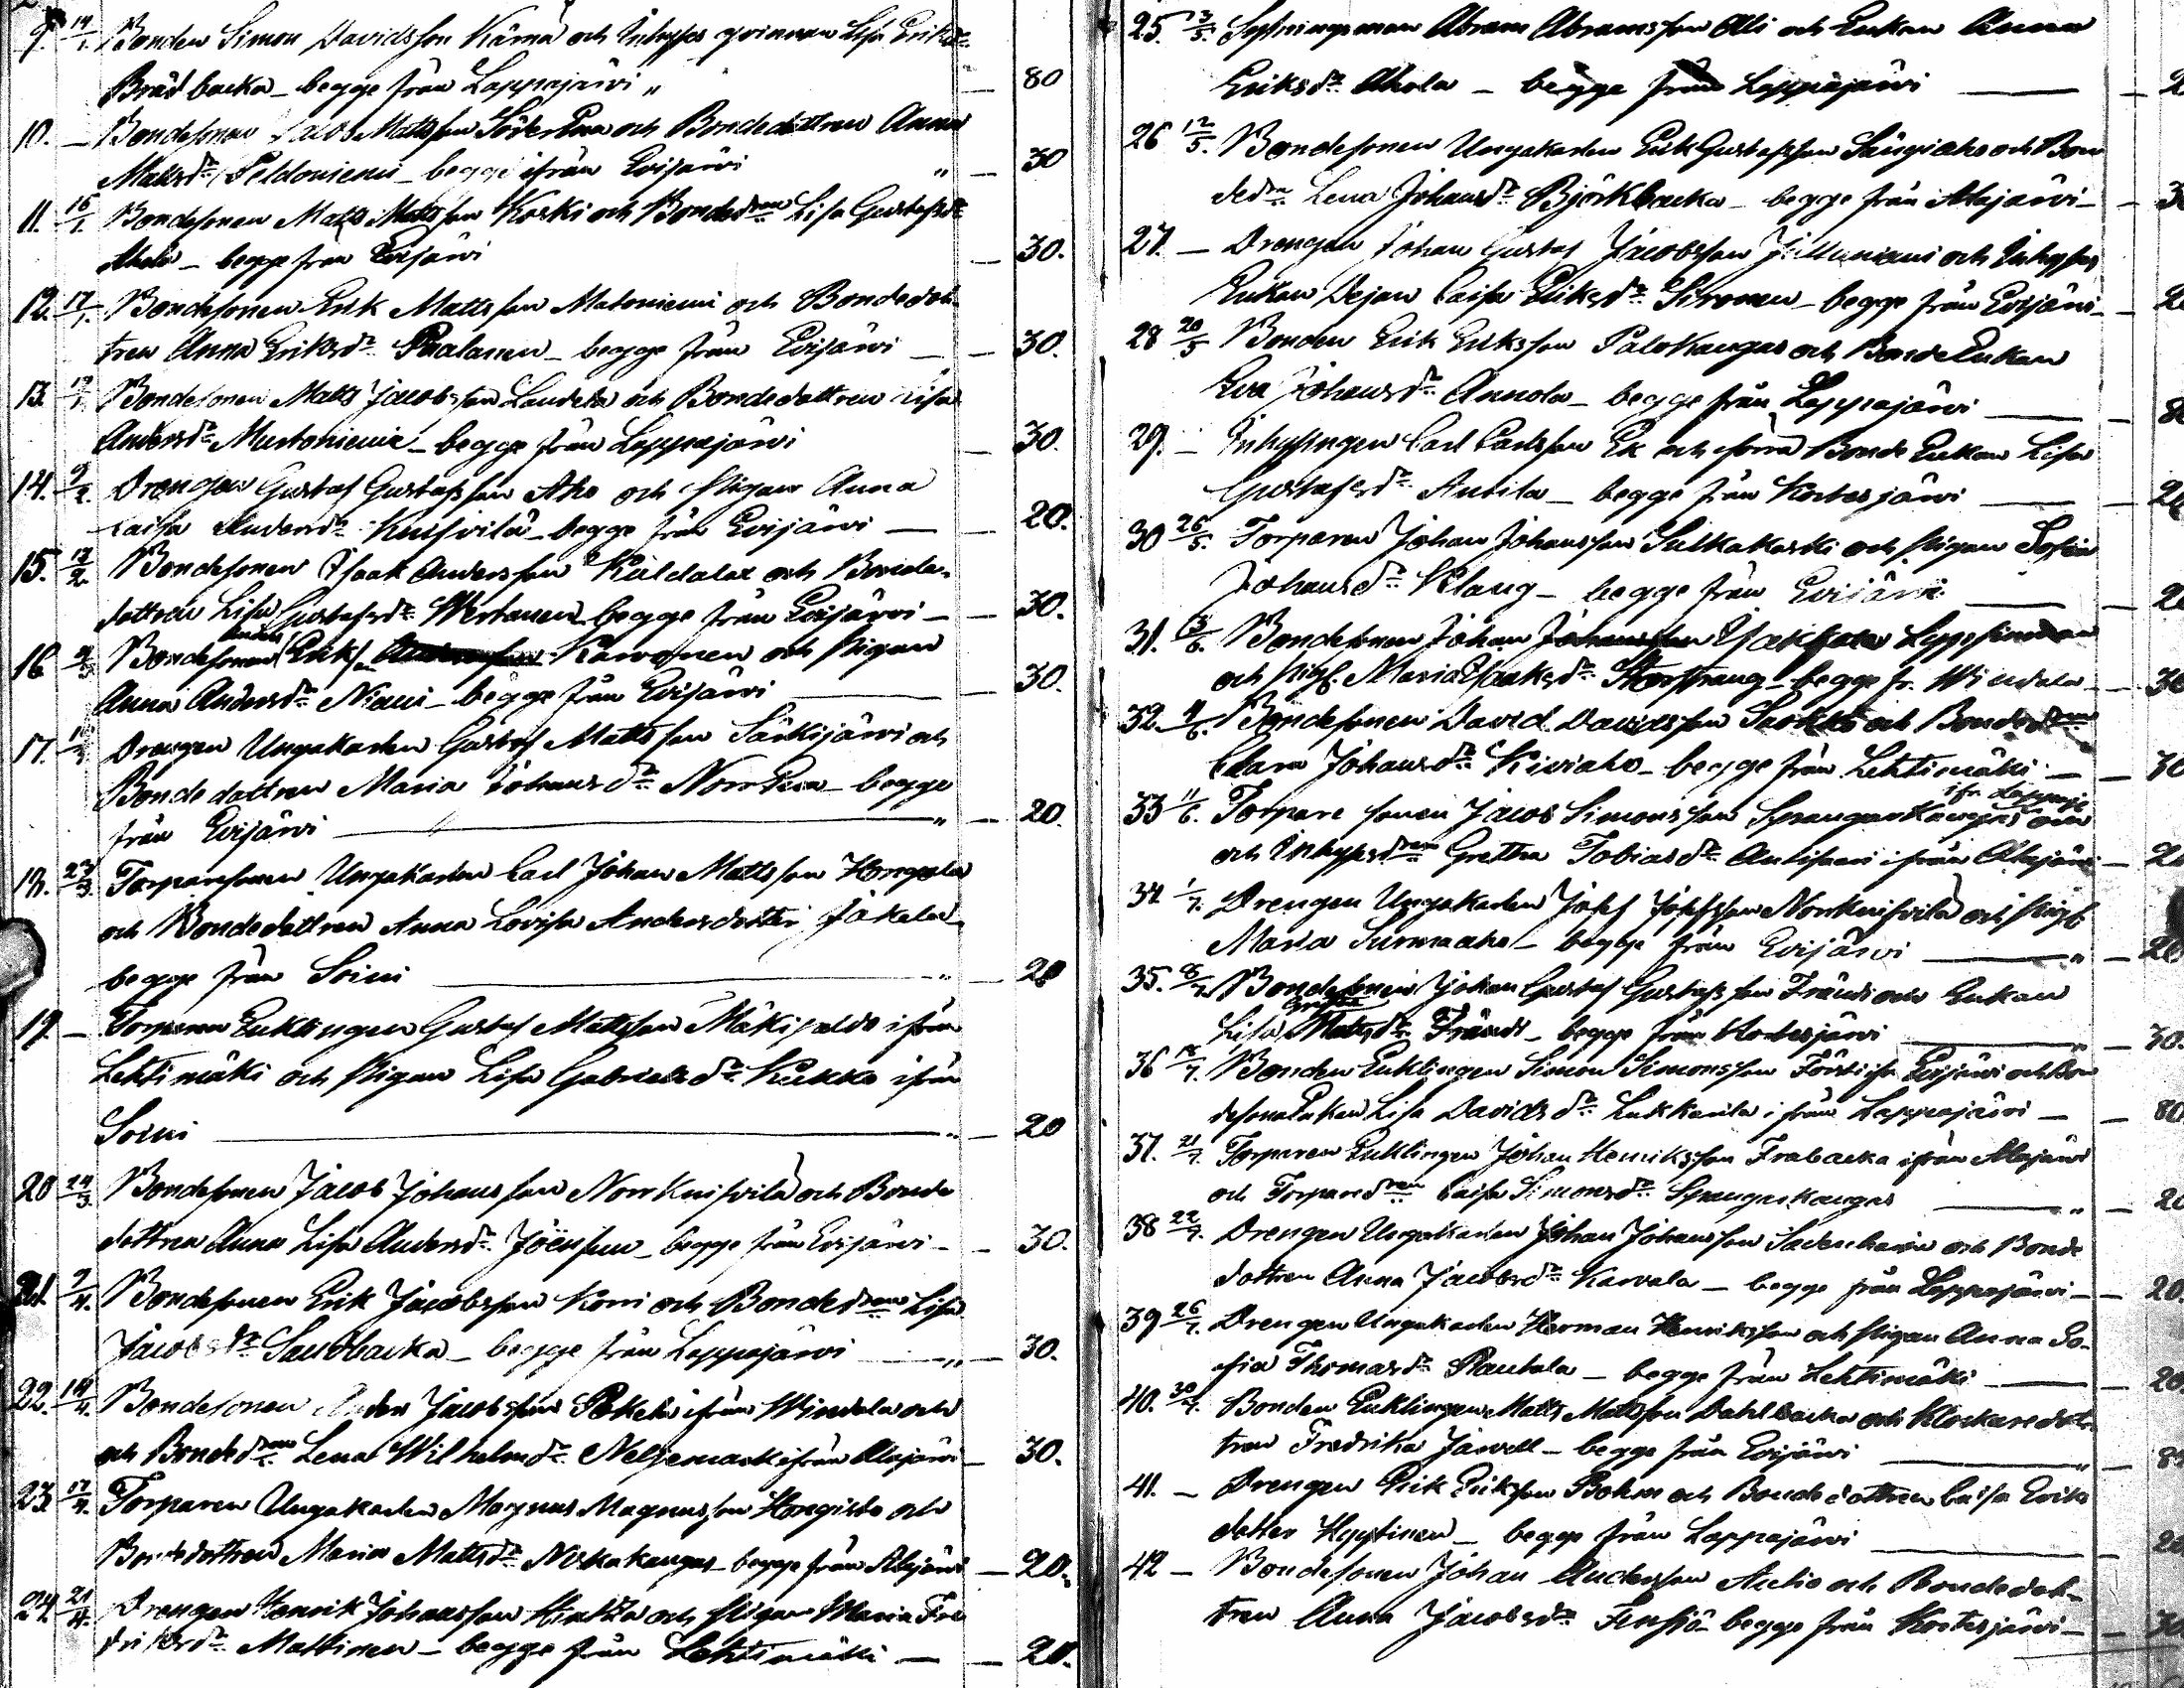 9. 14/1. Bonden Simon Davidsson Kärnä och Inhyses qvinnan Lisa Eriksdr
Brådbacka - begge från Lappajärvi „ — 80
10. — Bondesonen Jacob Mattsson Söderena och Bondedottren Anna
Mattsdr Peldoniemi - begge ifrån Evijärvi „ — 30
11. 16/1. Bondesonen Matts Mattsson Koski och Bondedren Lisa Gustafsdr
Aholi - begge från Evijärvi — 30.
12. 17/1. Bondesonen Erik Mattsson Matoniemi och Bondedot-
tren Anna Eriksdr Paalanen - begge från Evijärvi — 30.
13. Bondesonen Matts Jacobsson Laudela och Bondedottren Lisa
Andersdr Mustoniemi - begge från Lappajärvi — 30.
14. 9/2. Drengen Gustaf Gustafsson Aho och Pigan Anna
Caisa Andersdr Knifsilä - begge från Evijärvi — 20.
15. 12/2. Bondesonen Isaak Andersson Kuldalax och Bonde-
dottren Lisa Gustafsdr Wertanen begge från Evijärvi — 30.
Anders
16 Bondesonen Eriks. Kavonen och Pigan
Anna Andersdr Niemi - begge från Evijärvi — 30.
17. Drengen Ungakarlen Gustaf Mattsson Särkijärvi och
Bonde dottren Maria Johansdr Norrena - begge
från Evijärvi — „ — 20.
18. 23/3. Torparesonen Ungakarlen Carl Johan Mattsson Hongola
och Bondedottren Anna Lovisa Andersdotter Jokela
begge från Soini — „ — 20
19. — Torparen Enklingen Gustaf Mattsson Mäkipeldo ifrån
Lehtimäki och Pigan Lisa Gabrielsdr Kukko ifrån
Soini — „ — 20
20 24/3. Bondesonen Jacob Johansson Norrknifsilä och Bonde
dottren Anna Lisa Andersdr Jöensuu - begge från Evijärvi — 30.
21. 7/4. Bondesonen Erik Jacobsson Kori och Bondedren Lisa
Jacobsdr Sandbacka - begge från Lappajärvi — „ — 30.
22. 14/4. Bondesonen Anders Jacobsson Pokela ifrån Windala och
och Bondedren Lena Wilhelmsdr Neljemark ifrån Alajärvi — 30.
23. 17/4. Torparen Ungakarlen Magnus Magnusson Hongisto och
Bondedottren Maria Mattsdr Niskakangas - begge från Alajärvi — 20.
24. 21/4. Drengen Henrik Johansson Hietala och Pigan Maria Fre
driksdr Mattinen - begge från Lehtimäki — 20.
25. 3/5. Sytningsman Abram Abramsson Ali och Enkan Anna
Eriksdr Ahola - begge från Lappajärvi — 2
26 12/5. Bondesonen Ungakarlen Erik Gustafsson Sängiaho och Bon
dedr Lena Johansdr Björkbacka - begge från Alajärvi — 3
27. — Drengen Johan Gustaf Jacobsson Jilluniemi och Inhyses
Enkan Dejan Caisa Eriksdr Sironen - begge från Evijärvi — 2
28 20/5 Bonden Erik Eriksson Palokangas och Bonde Enkan
Eva Johansdr Annola - begge från Lappajärvi — 8
29. — Inhysingen Carl Carlsson Ek och förra Bonde Enkan Lisa
Gustafsdr Antila - begge från Kortesjärvi — 2
30 26/5. Torparen Johan Johansson Sulkakoski och Pigan Sofia
Johansdr Klang - begge från Evijärvi — 2
31. /6. Bondesonen Johan Johansson Isaksson Leppesimonen
och Pig. Maria Isaksdr Storstrang - begge fr. Windala — 30
32. 4/6. Bondesonen David Davidsson Saokko och Bondedren
Clara Johansdr Kiviaho - begge från Lehtimäki — 30
ifr Lappaj:
33 11/6. Torpare sonen Jacob Simonsson Sprangarkangas
och Inhysesdren Gretha Tobiasdr Antipori ifrån Alajärvi — 2
34 1/7. Drengen Ungakarlen Josef Josefsson Norrknifsilä och Pig.
Maria Surmaaho - begge från Evijärvi — „ — 20
35. 8/7. Bondesonen Johan Gustaf Gustafsson Frändi och Enkan
Gretha
Lisa Mattsdr Frändi - begge från Kortesjärvi — „ — 30
36 /7. Bonden Enklingen Simon Simonsson Försti ifr Evijärvi och Bon
desons Enkan Lisa Davidsdr Lukkarila ifrån Lappajärvi — 80
37. 21/7. Torparen Enklingen Johan Henriksson Frabacka ifrån Alajärvi
och Torparedren Caisa Simonsdr Sprangarkangas — „ — 20
38 22/7. Drengen Ungakarlen Johan Johansson Sadeeharju och Bonde
dottren Anna Jacobsdr Karvala - begge från Lappajärvi — 20
39 26/7. Drengen Ungakarlen Herman Henriksson och Pigan Anna So-
fia Thomasdr Rautala - begge från Lehtimäki — 20
40. 30/7. Bonden Enklingen Matts Mattsson Dahlbacka och Klockaredot-
tren Fredrika Jarvell - begge från Evijärvi — „ — 8
41. — Drengen Erik Eriksson Bohm och Bondedottren Caisa Eriks
dotter Hyytinen - begge från Lappajärvi — 20
42 — Bondesonen Johan Andersson Autio och Bondedot-
tren Anna Jacobsdr Finsjö begge från Kortesjärvi — 30